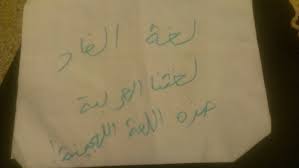 لغة الضاد
لغتنا العربية
هذه اللغة